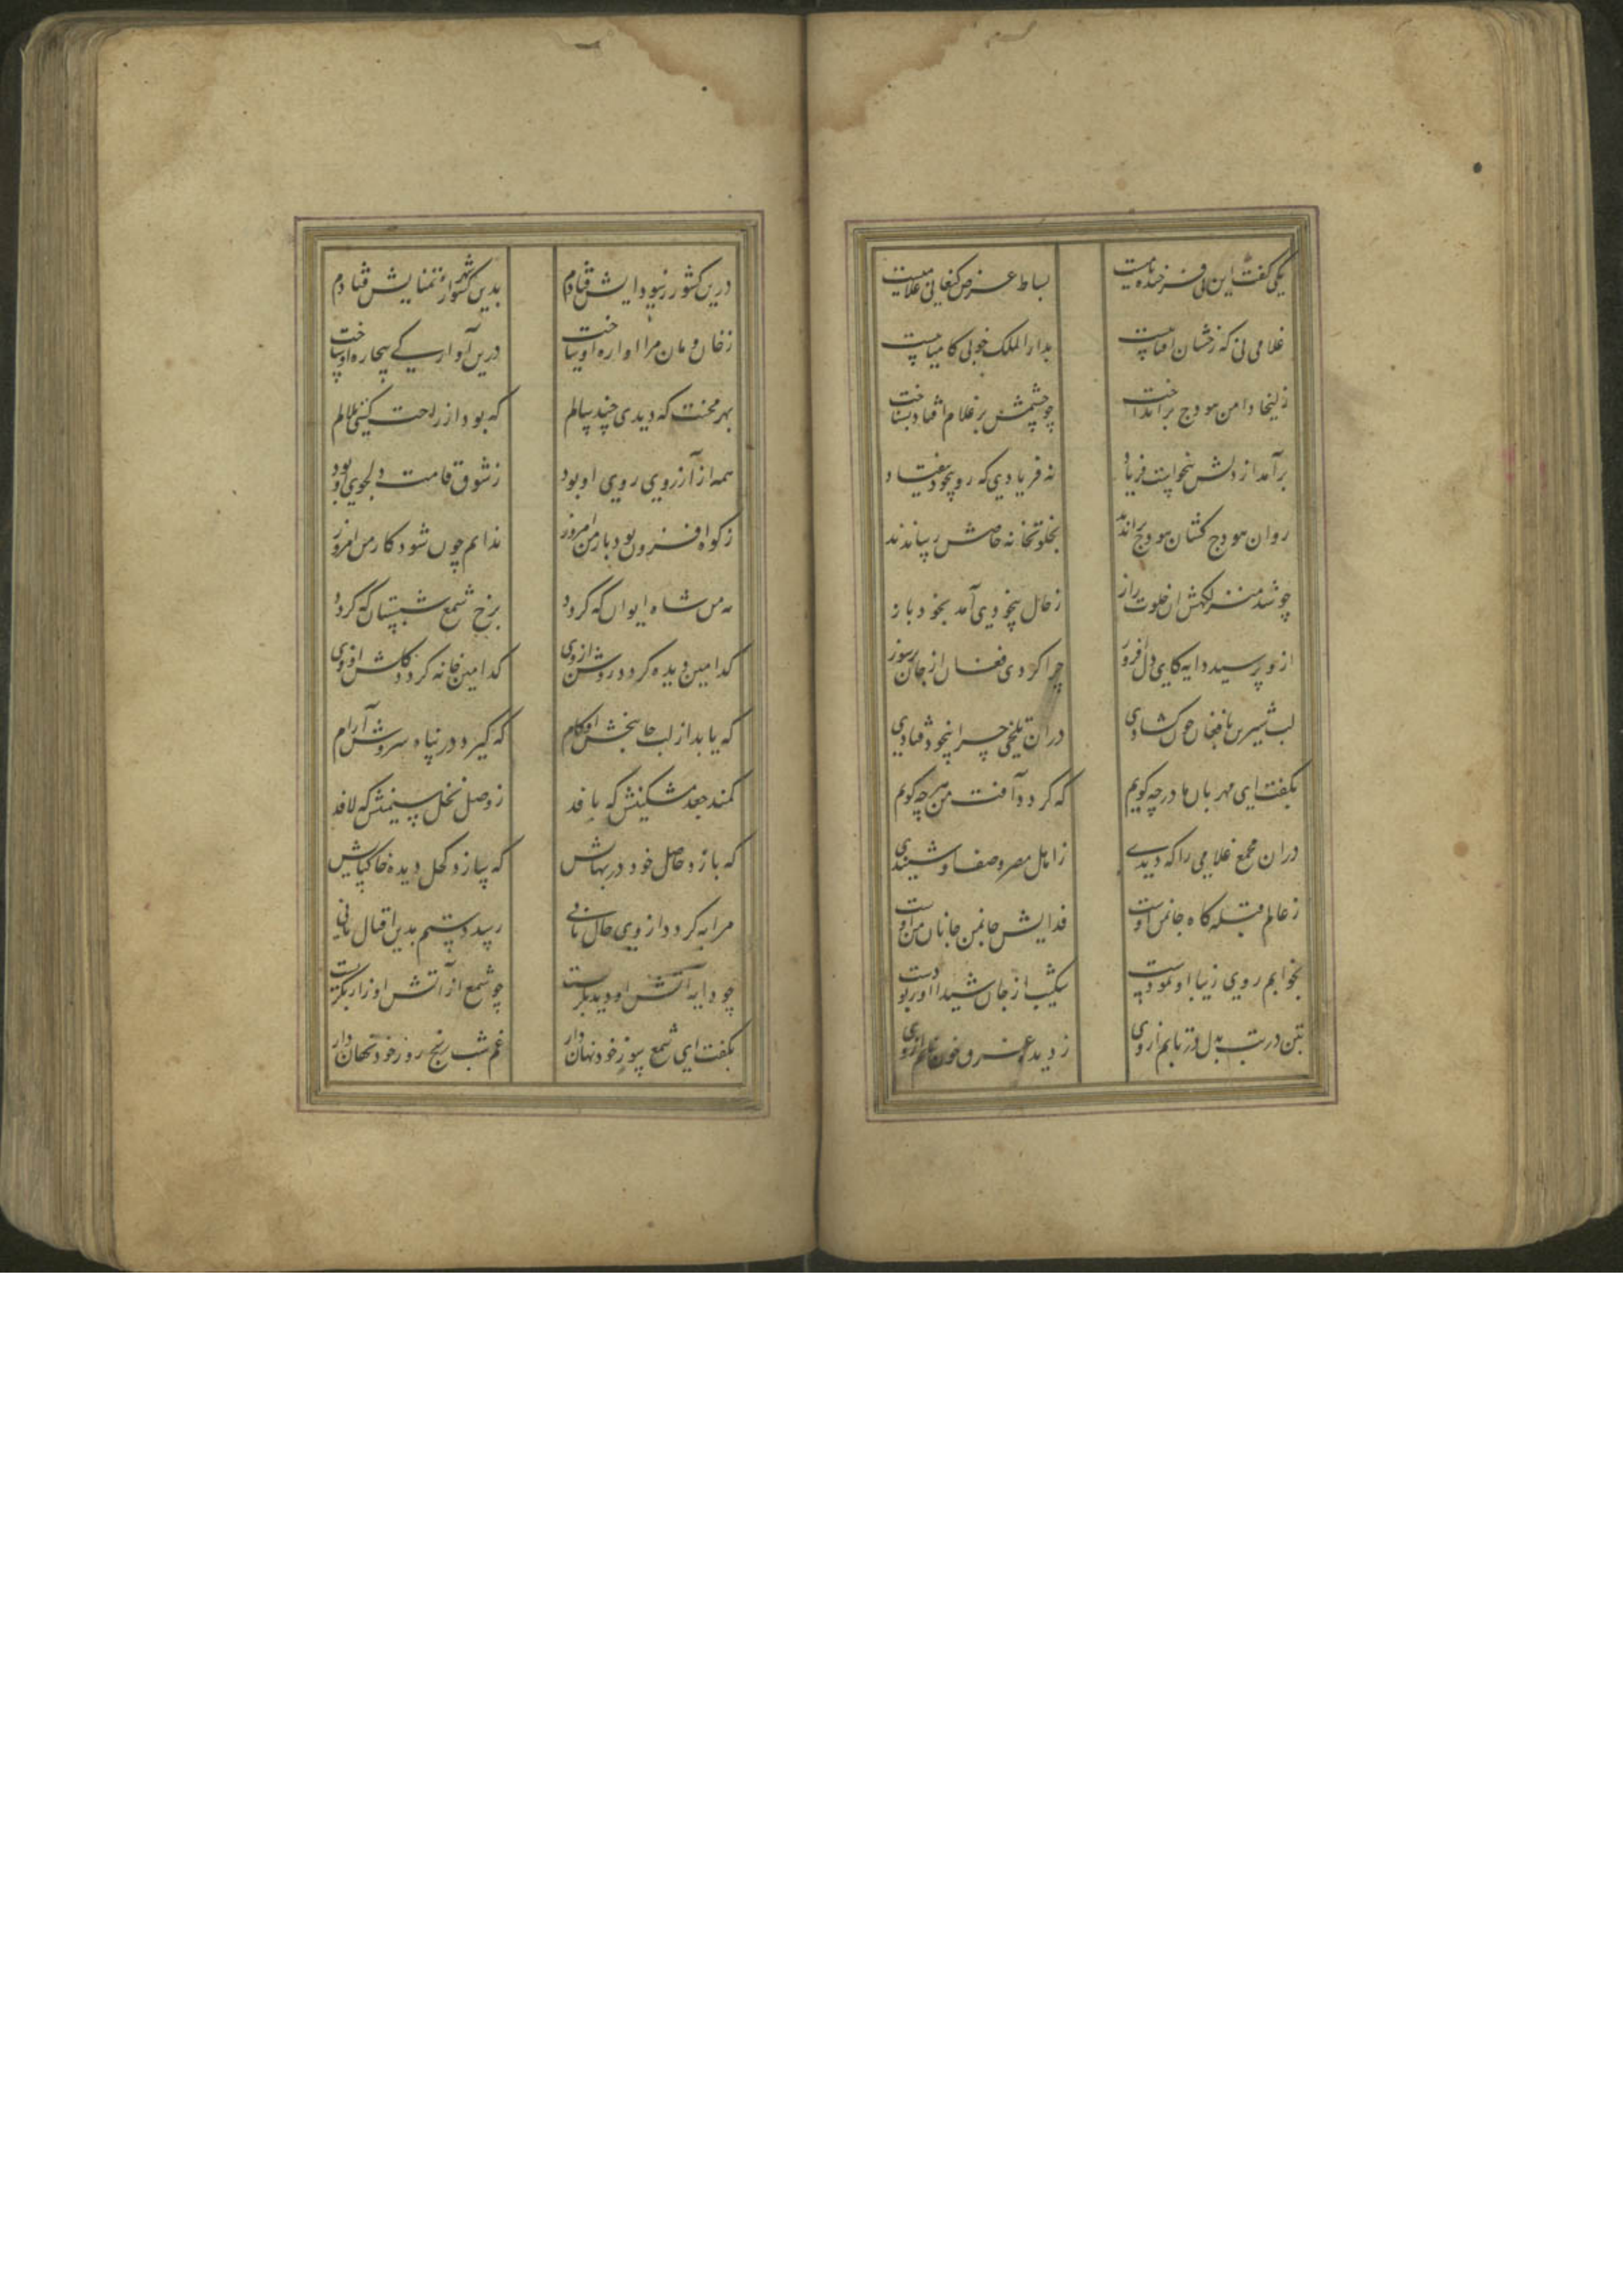 یکی گفت این پی فرخنده نامیست بساط عرض کنعانی غلامیست
غلامی نی که رخشان آفتابیست بدارالملک خوبی کامیابیست
زلیخا دامن هودج برانداخت چو چشمش بر غلام افتاد بشناخت
برآمد از دلش بیخواست فریاد نه فریادی که رو بیخود بیفتاد
روان هودج کشان هودج براندند بخلوتخانه خاصش رساندند
چو شد منزلگهش آن خلوت راز ز حال بیخودی آمد بخود باز
ازو پرسید دایه کای دل افروز چرا کردی فغان از جان پرسوز
لب شیرین بافغان چون گشادی دران تلخی چرا بیخود فتادی
بگفت ای مهربان مادر چه گویم که گردد آفت من هر چه گویم
دران مجمع غلامی را که دیدی ز اهل مصر وصف او شنیدی
ز عالم قبله گاه جان من اوست فدایش جان من جانان من اوست
بخوابم روی زیبا او نمودست شکیب از جان شیدا او ربودست
بتن در تب بدل در تابم از وی ز دیده غرق خون نابم از وی
درین کشور ز سودایش فتادم بدین شهر از تمنایش فتادم
ز خان و مان مرا آواره او ساخت درین آوارگی بیچاره او ساخت
بهر محنت که دیدی چند سالم که بود از راحت گیتی ملالم
همه از آرزوی روی او بود ز شوق قامت دلجوی او بود
ز کوه افزون بود بار من امروز ندانم چون شود کار من امروز
مه من شاه ایوان که گردد برخ شمع شبستان که گردد
کدامین دیده گردد روشن از وی کدامین خانه گردد گلشن از وی
که یابد از لب جانبخش او کام که گیرد در پناه سروش آرام
کمند جعد مشکینش که بافد ز وصل نخل سیمینش که لافد
که بازد حاصل خود در بهایش که سازد کحل دیده خاک پایش
مرا به گردد از وی حال یا نی رسد دستم بدین اقبال یا نی
چو دایه آتش او دید بگریست چو شمع از آتش او زار بگریست
بگفت ای شمع سوز خود نهان دار غم شب رنج روز خود نهان دار